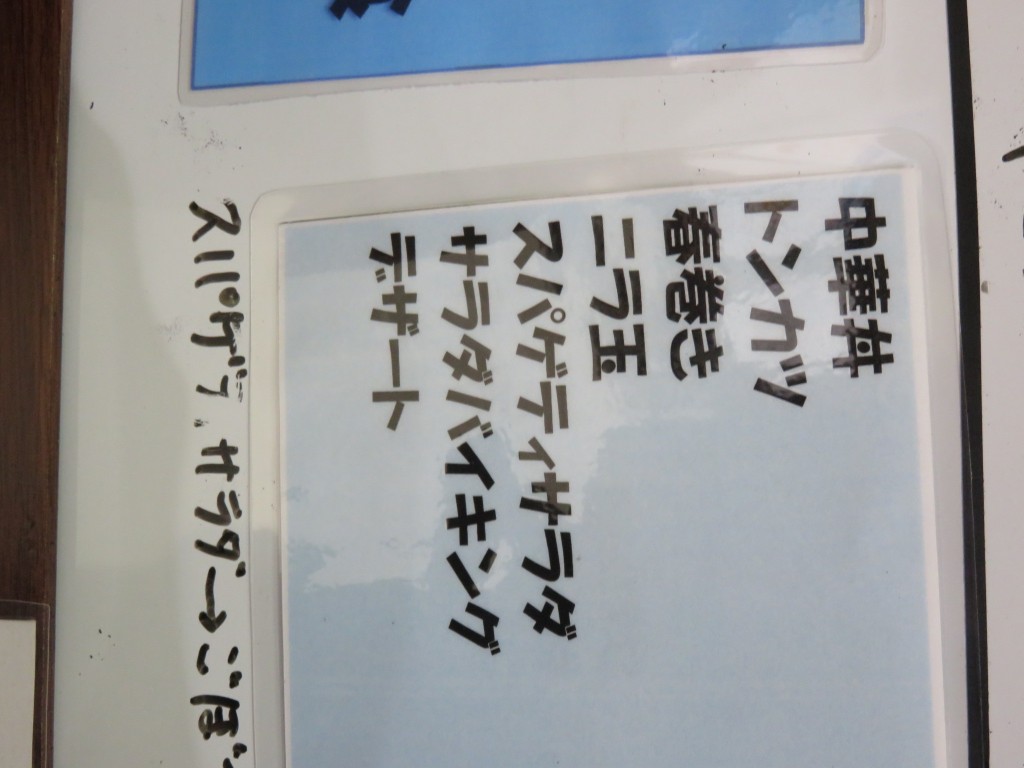 中華丼
トンカツ
春巻き
ニラ玉
スパゲティサラダ
サラダバイキング
デザート
スパゲティサラダ→ごぼ